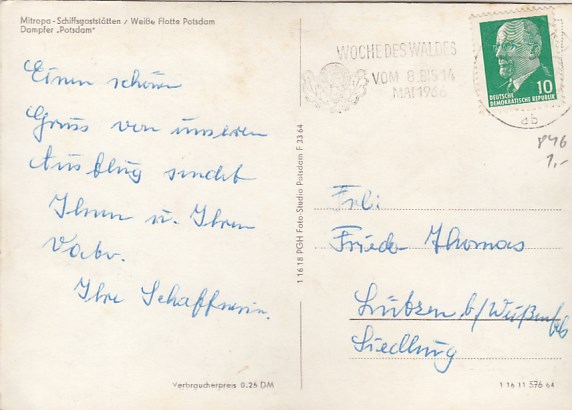 Mitropa-Schiffsgaststätten / Weiße Flotte Potsdam
Dampfer „Potsdam"
WOCHE DES WALDES
VOM 8. BIS 14
MAI 1966
10
DEUTSCHE
DEMOKRATISCHE REPUBLIK
db
846
1,-
Einen schönen
Gruss von unseren
Ausflug sendet
Ihnen u. Ihren
Vater.
Ihre Schaffnerin.
1 16 18 PGH Foto-Studio Potsdam F 33 64
Frl:
Frieda Thomas
Lützen b/Weißenfels
Siedlung
Verbraucherpreis 0,25 DM
1 16 11 576 64